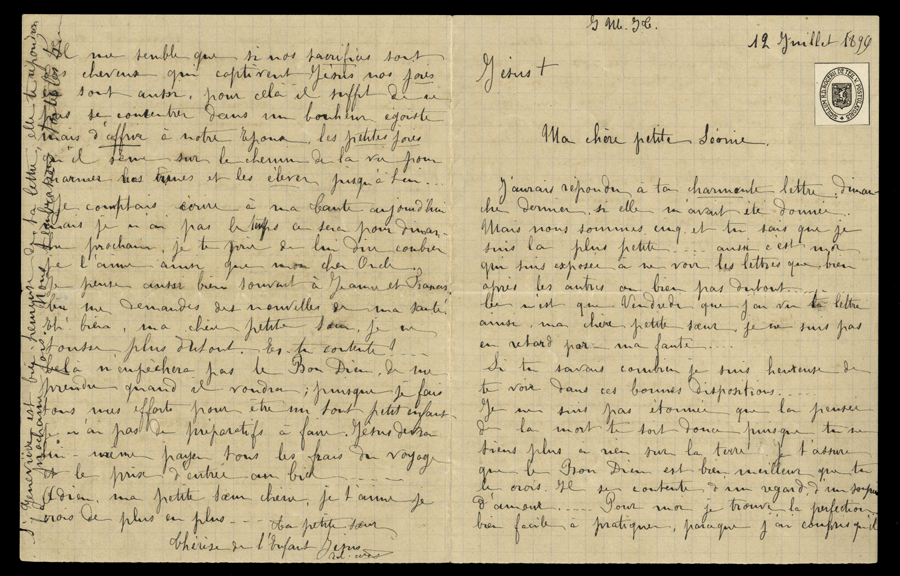 J. M. J. T.
12 Juillet 1896
Jésus +
Ma chère petite Léonie,
J'aurais répondu à ta charmante lettre, diman
che dernier, si elle m'avait été donnée.
Mais nous sommes cinq et tu sais que je
suis la plus petite .... aussi c'est moi
qui suis exposée à ne voir les lettres que bien
après les autres ou bien pas du tout....
Ce n'est que Vendredi que j'ai vu ta lettre
ainsi, ma chère petite sœur, je ne suis pas
en retard par ma faute ....
Si tu savais combien je suis heureuse de
te voir dans ces bonnes dispositions.....
Je ne suis pas étonnée que la pensée
de la mort te soit douce puisque tu ne
tiens plus à rien sur la terre. Je t'assure
que le Bon Dieu est bien meilleur que tu
le crois. Il se contente d'un regard, d'un soupir
d'amour ..... Pour moi je trouve la perfection
bien facile à pratiquer, parce que j'ai compris qu'il
Il me semble que si nos sacrifices sont
des cheveux qui captivent Jésus nos joies
le sont aussi, pour cela il suffit de ne
pas se concentrer dans un bonheur égoïste
mais d'offrir à notre Epoux les petites joies
qu'il sème sur le chemin de la vie pour
charmer nos âmes et les élever jusqu'à Lui...
Je comptais écrire à ma tante aujourd'hui
mais je n'ai pas le temps ce sera pour Diman-
che prochain, je te prie de lui dire combien
je l'aime ainsi que mon cher Oncle.
Je pense aussi bien souvent à Jeanne et Francis.
Tu me demandes des nouvelles de ma santé,
Eh! bien, ma chère petite Sœur, je ne
tousse plus du tout. Es-tu contente? ....
Cela n'empêchera pas le Bon Dieu, de me
prendre quand il voudra; puisque je fais
tous mes efforts pour être un tout petit enfant
je n'ai pas de préparatifs à faire. Jésus devra
lui-même payer tous les frais du voyage
et le prix d'entrée au Ciel ......
Adieu, ma petite Sœur chérie, je t'aime je
crois de plus en plus....
Ta petite sœur
Thérèse de l'Enfant Jésus
Sr Geneviève est bien heureuse de ta lettre, elle te répondra
la prochaine fois. Nous